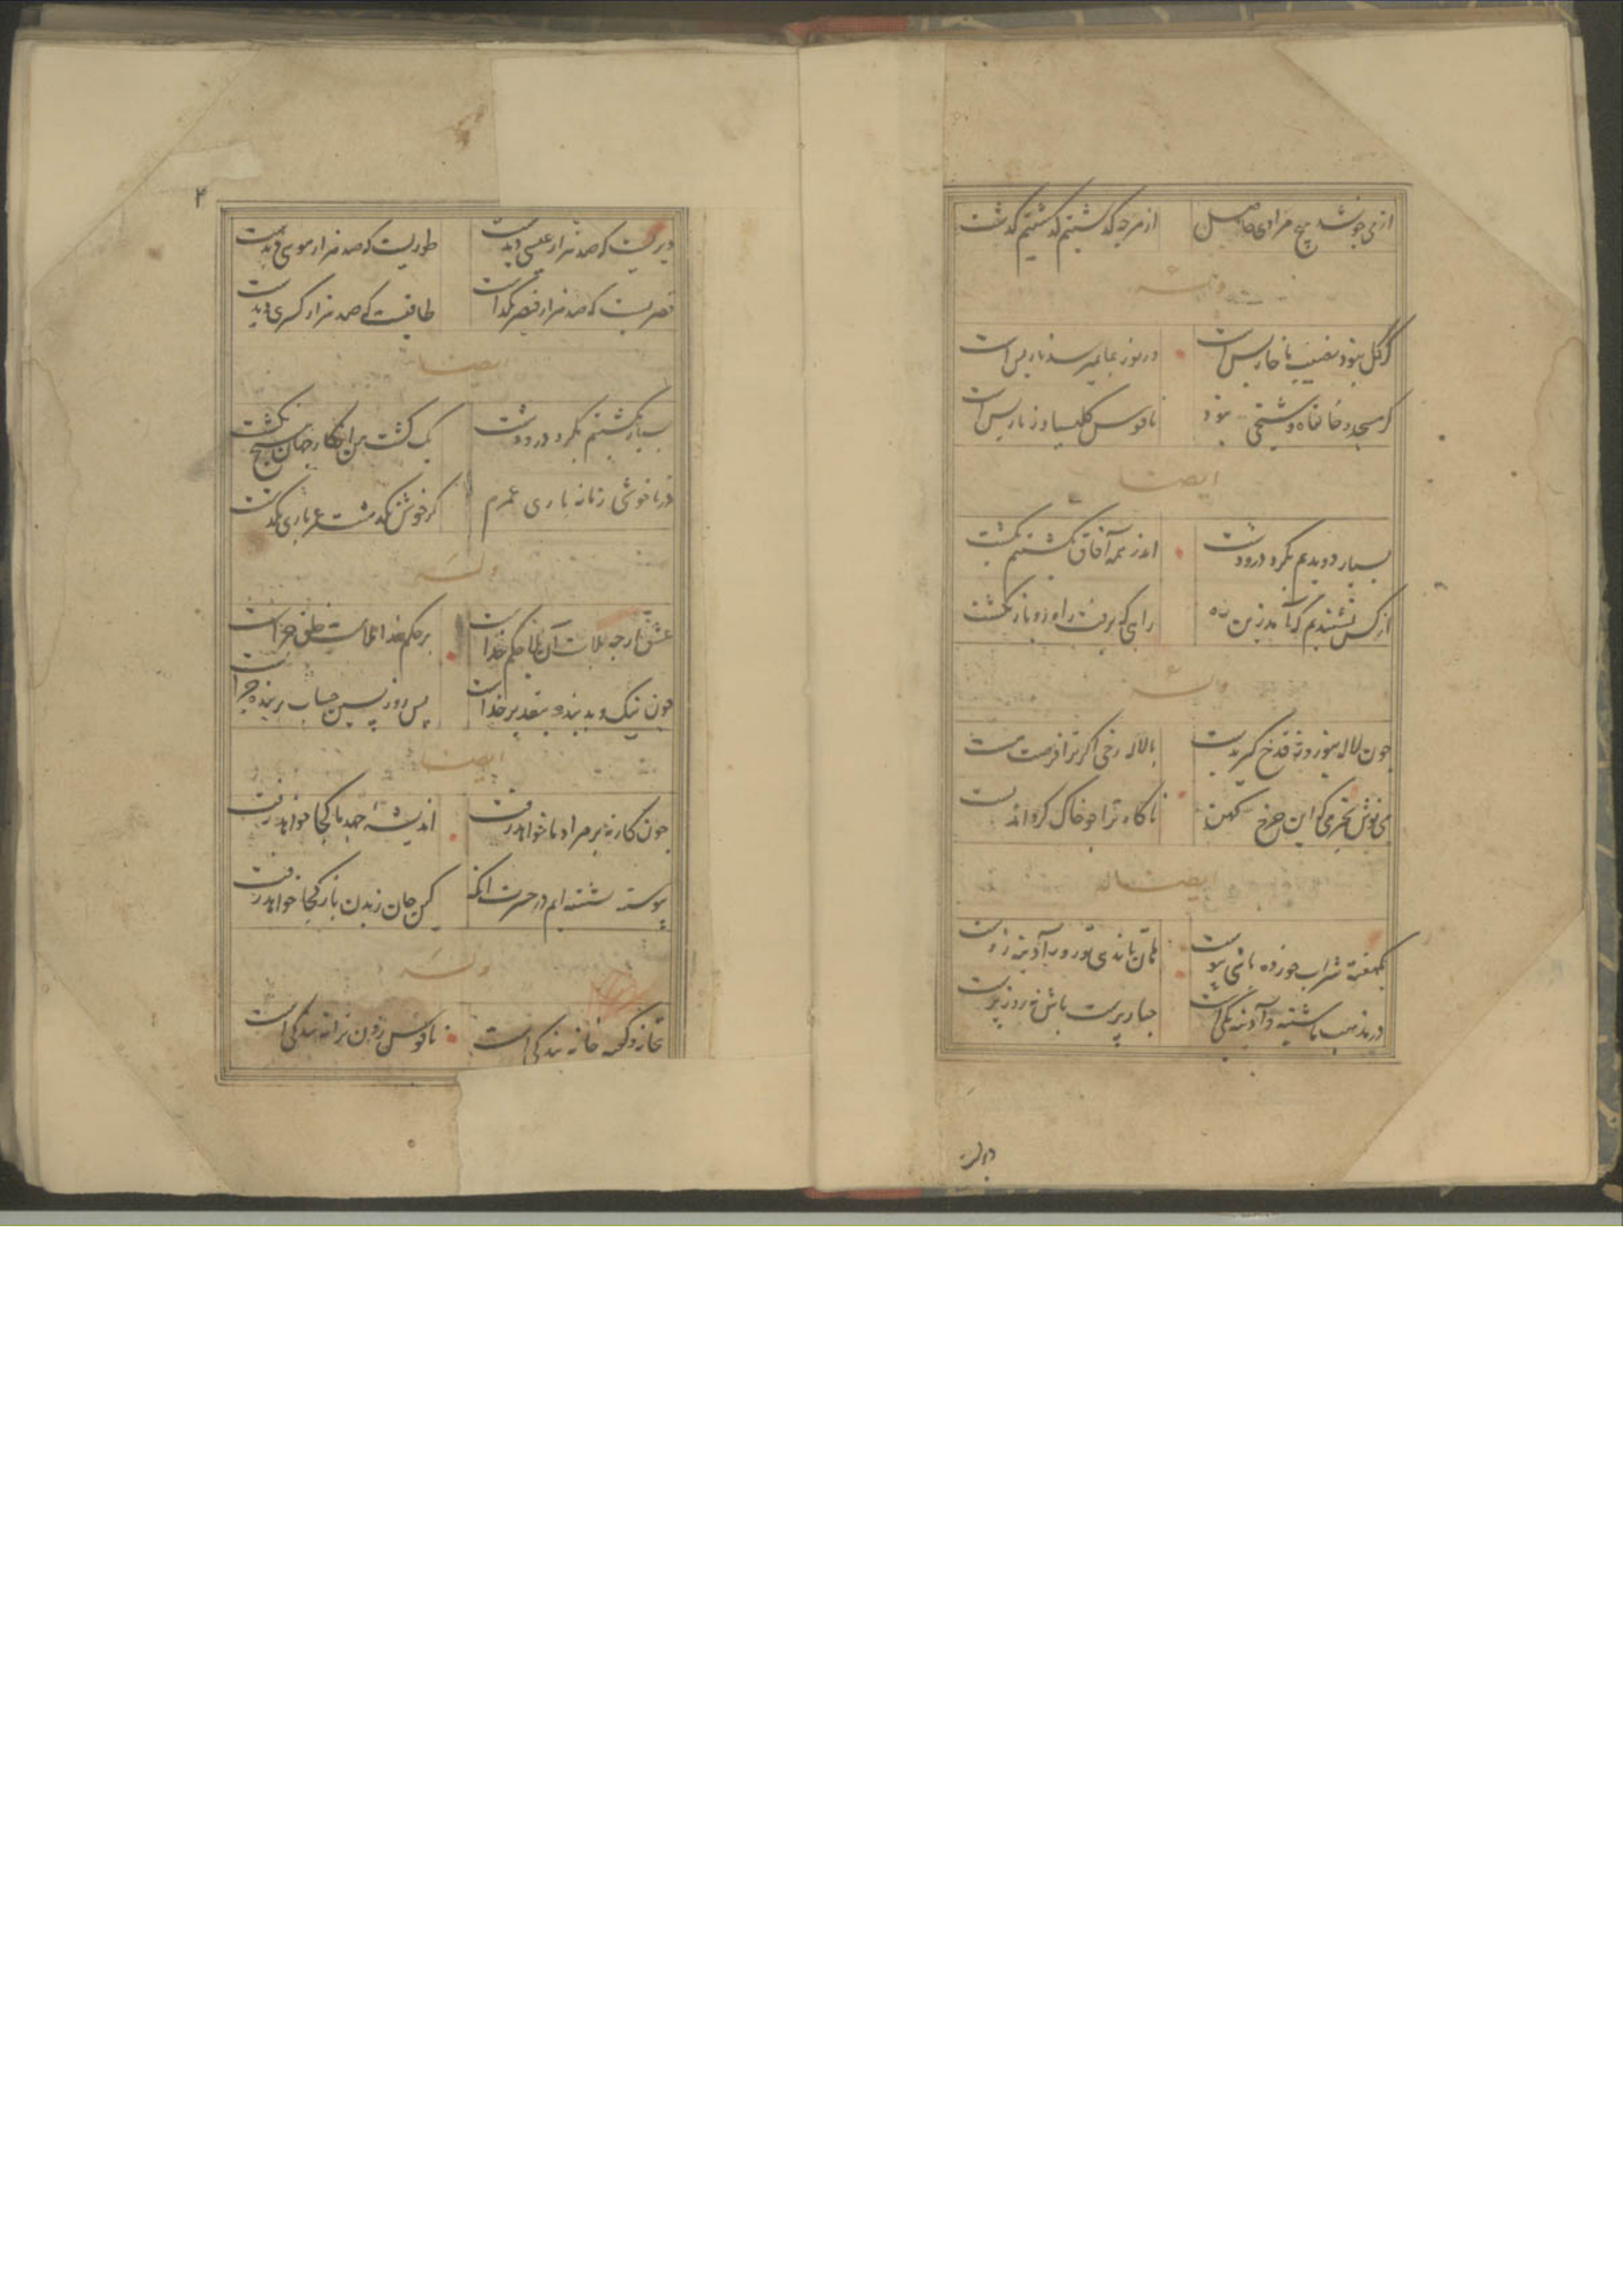 از می چو نشد هیچ مرادی حاصل از هرچه گذشتیم گذشتیم گذشت
وله
گر گل نبود نصیب ما خار بس است ور نور بما نمیرسد نار بس است
گر مسجد و خانقاه و شیخی نبود ناقوس کلیسیا و زنار بس است
ایضا
بسیار دویدیم بگرد در و دشت اندر همه آفاق بگشتیم بگشت
از کس نشنیدیم که آمد زین ره راهی که برفت راه رو باز نگشت
وله
چون لاله بنوروز قدح گیر بدست با لاله رخی اگر ترا فرصت هست
می نوش بخرمی که این چرخ کهن ناگاه ترا چو خاک گرداند پست
ایضا
یکهفته شراب خورده باشی پیوست هان تا ندهی تو روز آدینه ز دست
در مذهب ما شنبه و آدینه یکی است جبار پرست باش نه روز پرست
دیریست
۴
دیریست که صد هزار عیسی دیدست طوریست که صد هزار موسی دیدست
قصریست که صد هزار قیصر بگذاشت طاقیست که صد هزار کسری دیدست
ایضا
بسیار بگشتیم بگرد در و دشت یک گشت من از کار جهان هیچ نگشت
در ناخوشی زمانه باری عمرم گر خوش نگذشت عمر باری بگذشت
وله
عشق ارچه بلاست آن بلا حکم خداست بر حکم خدا ملامت خلق چراست
چون نیک و بد بنده بتقدیر خداست پس روز پسین حساب بر بنده چراست
ایضا
چون کار نه بر مراد ما خواهد رفت اندیشه جهد ما کجا خواهد رفت
پیوسته نشسته ایم در حسرت آنکه
وله
بتخانه و کعبه خانه بندگی است ناقوس زدن ترانه بندگی است